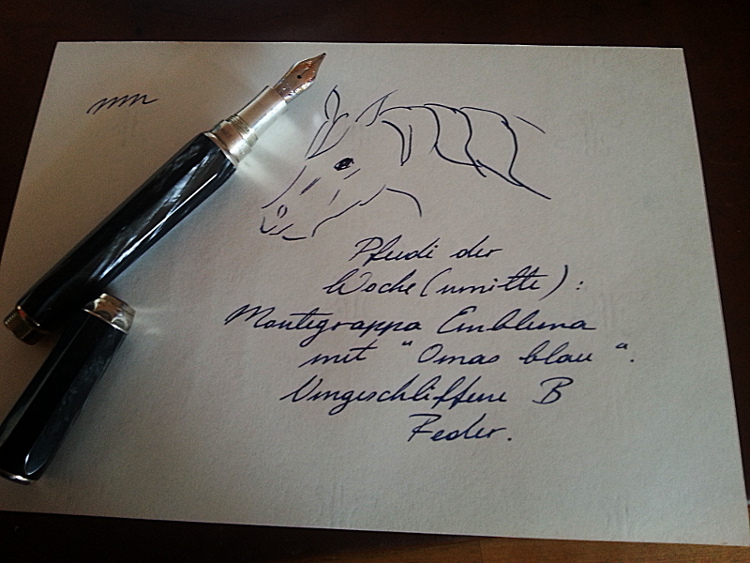 Pferdi der
Woche(nmitte):
Montegrappa Emblema
mit "Omas blau".
Umgeschliffene B
Feder.